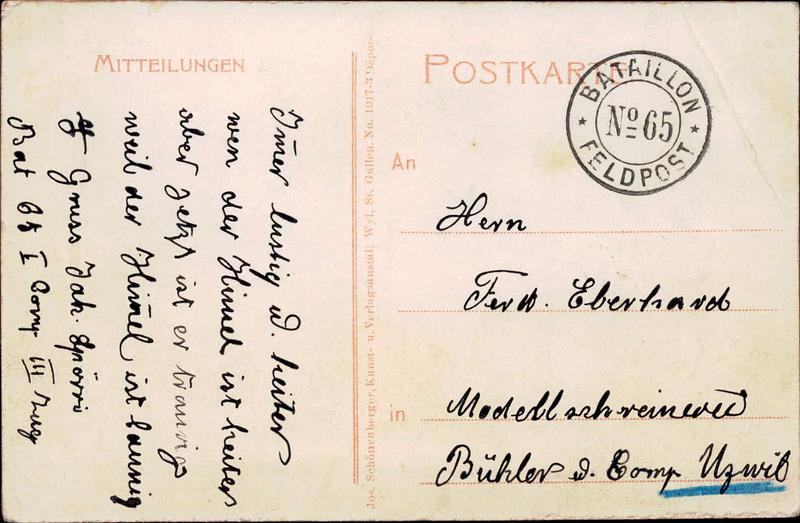 MITTEILUNGEN
Imer lustig u. heiter
wen der Himel ist heiter
aber jetzt ist er traurig
weil der Himel ist launig
Gruss Jak. Spörri
Bat 65 I Comp III Zug
Jos. Schönenberger, Kunst- u. Verlagsanstalt Wyl, St. Gallen. No. 1017-3
POSTKARTE
BATAILLON
No 65
FELDPOST
An
Hern
Ferd. Eberhard
in
Modellschreinerei
Bühler u. Comp Uzwil